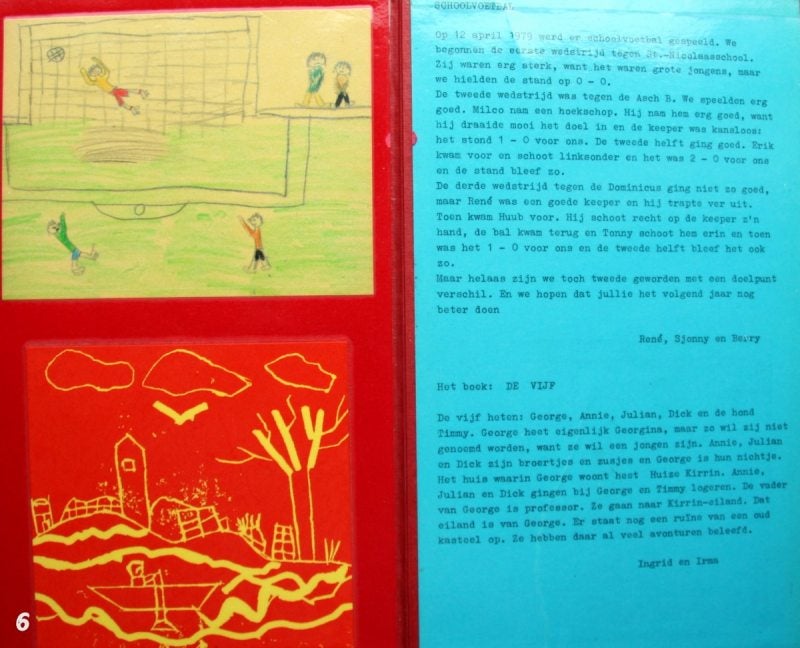 SCHOOLVOETBAL
Op 12 april 1979 werd er schoolvoetbal gespeeld. We
begonnen de eerste wedstrijd tegen St.-Nicolaasschool.
Zij waren erg sterk, want het waren grote jongens, maar
we hielden de stand op 0 - 0.
De tweede wedstrijd was tegen de Asch B. We speelden erg
goed. Milco nam een hoekschop. Hij nam hem erg goed, want
hij draaide mooi het doel in en de keeper was kansloos:
het stond 1 - 0 voor ons. De tweede helft ging goed. Erik
kwam voor en schoot linksonder en het was 2 - 0 voor ons
en de stand bleef zo.
De derde wedstrijd tegen de Dominicus ging niet zo goed,
maar René was een goede keeper en hij trapte ver uit.
Toen kwam Huub voor. Hij schoot recht op de keeper z'n
hand, de bal kwam terug en Tonny schoot hem erin en toen
was het 1 - 0 voor ons en de tweede helft bleef het ook
zo.
Maar helaas zijn we toch tweede geworden met een doelpunt
verschil. En we hopen dat jullie het volgend jaar nog
beter doen
René, Sjonny en Berry
Het boek: DE VIJF
De vijf heten: George, Annie, Julian, Dick en de hond
Timmy. George heet eigenlijk Georgina, maar zo wil zij niet
genoemd worden, want ze wil een jongen zijn. Annie, Julian
en Dick zijn broertjes en zusjes en George is hun nichtje.
Het huis waarin George woont heet Huize Kirrin. Annie,
Julian en Dick gingen bij George en Timmy logeren. De vader
van George is professor. Ze gaan naar Kirrin-eiland. Dat
eiland is van George. Er staat nog een ruïne van een oud
kasteel op. Ze hebben daar al veel avonturen beleefd.
Ingrid en Irma
6